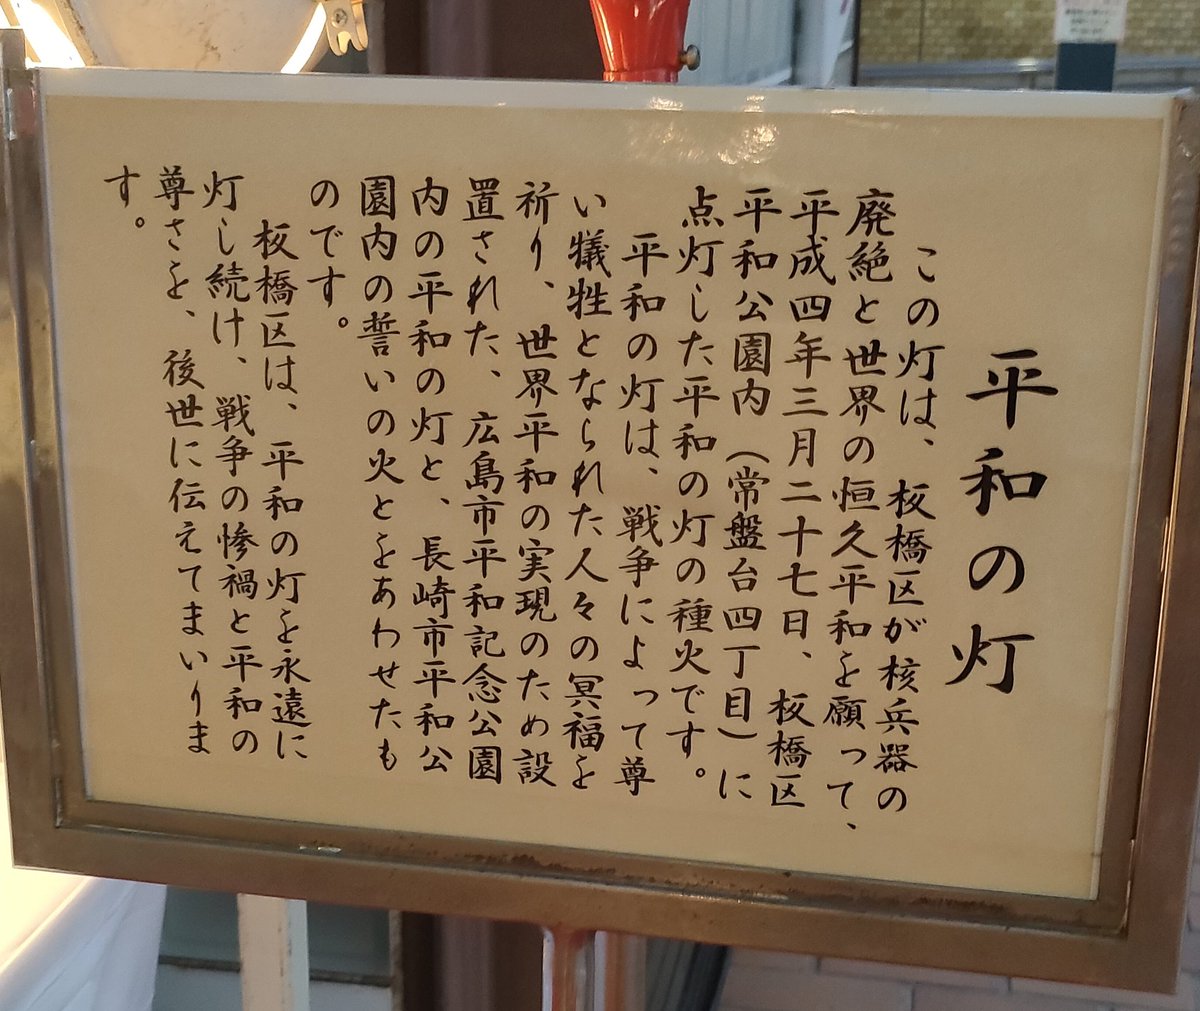 平和の灯
この灯は、板橋区が核兵器の
廃絶と世界の恒久平和を願って、
平成四年三月二十七日、板橋区
平和公園内（常盤台四丁目）に
点灯した平和の灯の種火です。
平和の灯は、戦争によって尊
い犠牲となられた人々の冥福を
祈り、世界平和の実現のため設
置された、広島市平和記念公園
内の平和の灯と、長崎市平和公
園内の誓いの火とをあわせたも
のです。
板橋区は、平和の灯を永遠に
灯し続け、戦争の惨禍と平和の
尊さを、後世に伝えてまいりま
す。